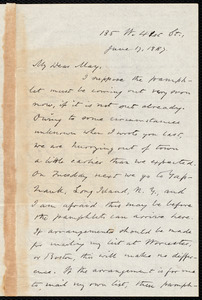 135 W. 41st St.,
June 17, 1887.
My Dear May,
I suppose the pamph-
let must be coming out very soon
now, if it is not out already.
Owing to some circumstances
unknown when I wrote you last,
we are hurrying out of town
a little earlier than we expected.
On Tuesday next we go to
Long Island, N.Y., and
I am afraid this may be before
the pamphlets can arrive here.
If arrangements should be made
for mailing my list at Worcester,
or Boston, this will make no diffe-
rence. If the arrangement is for me
to mail my own list, then pamph-